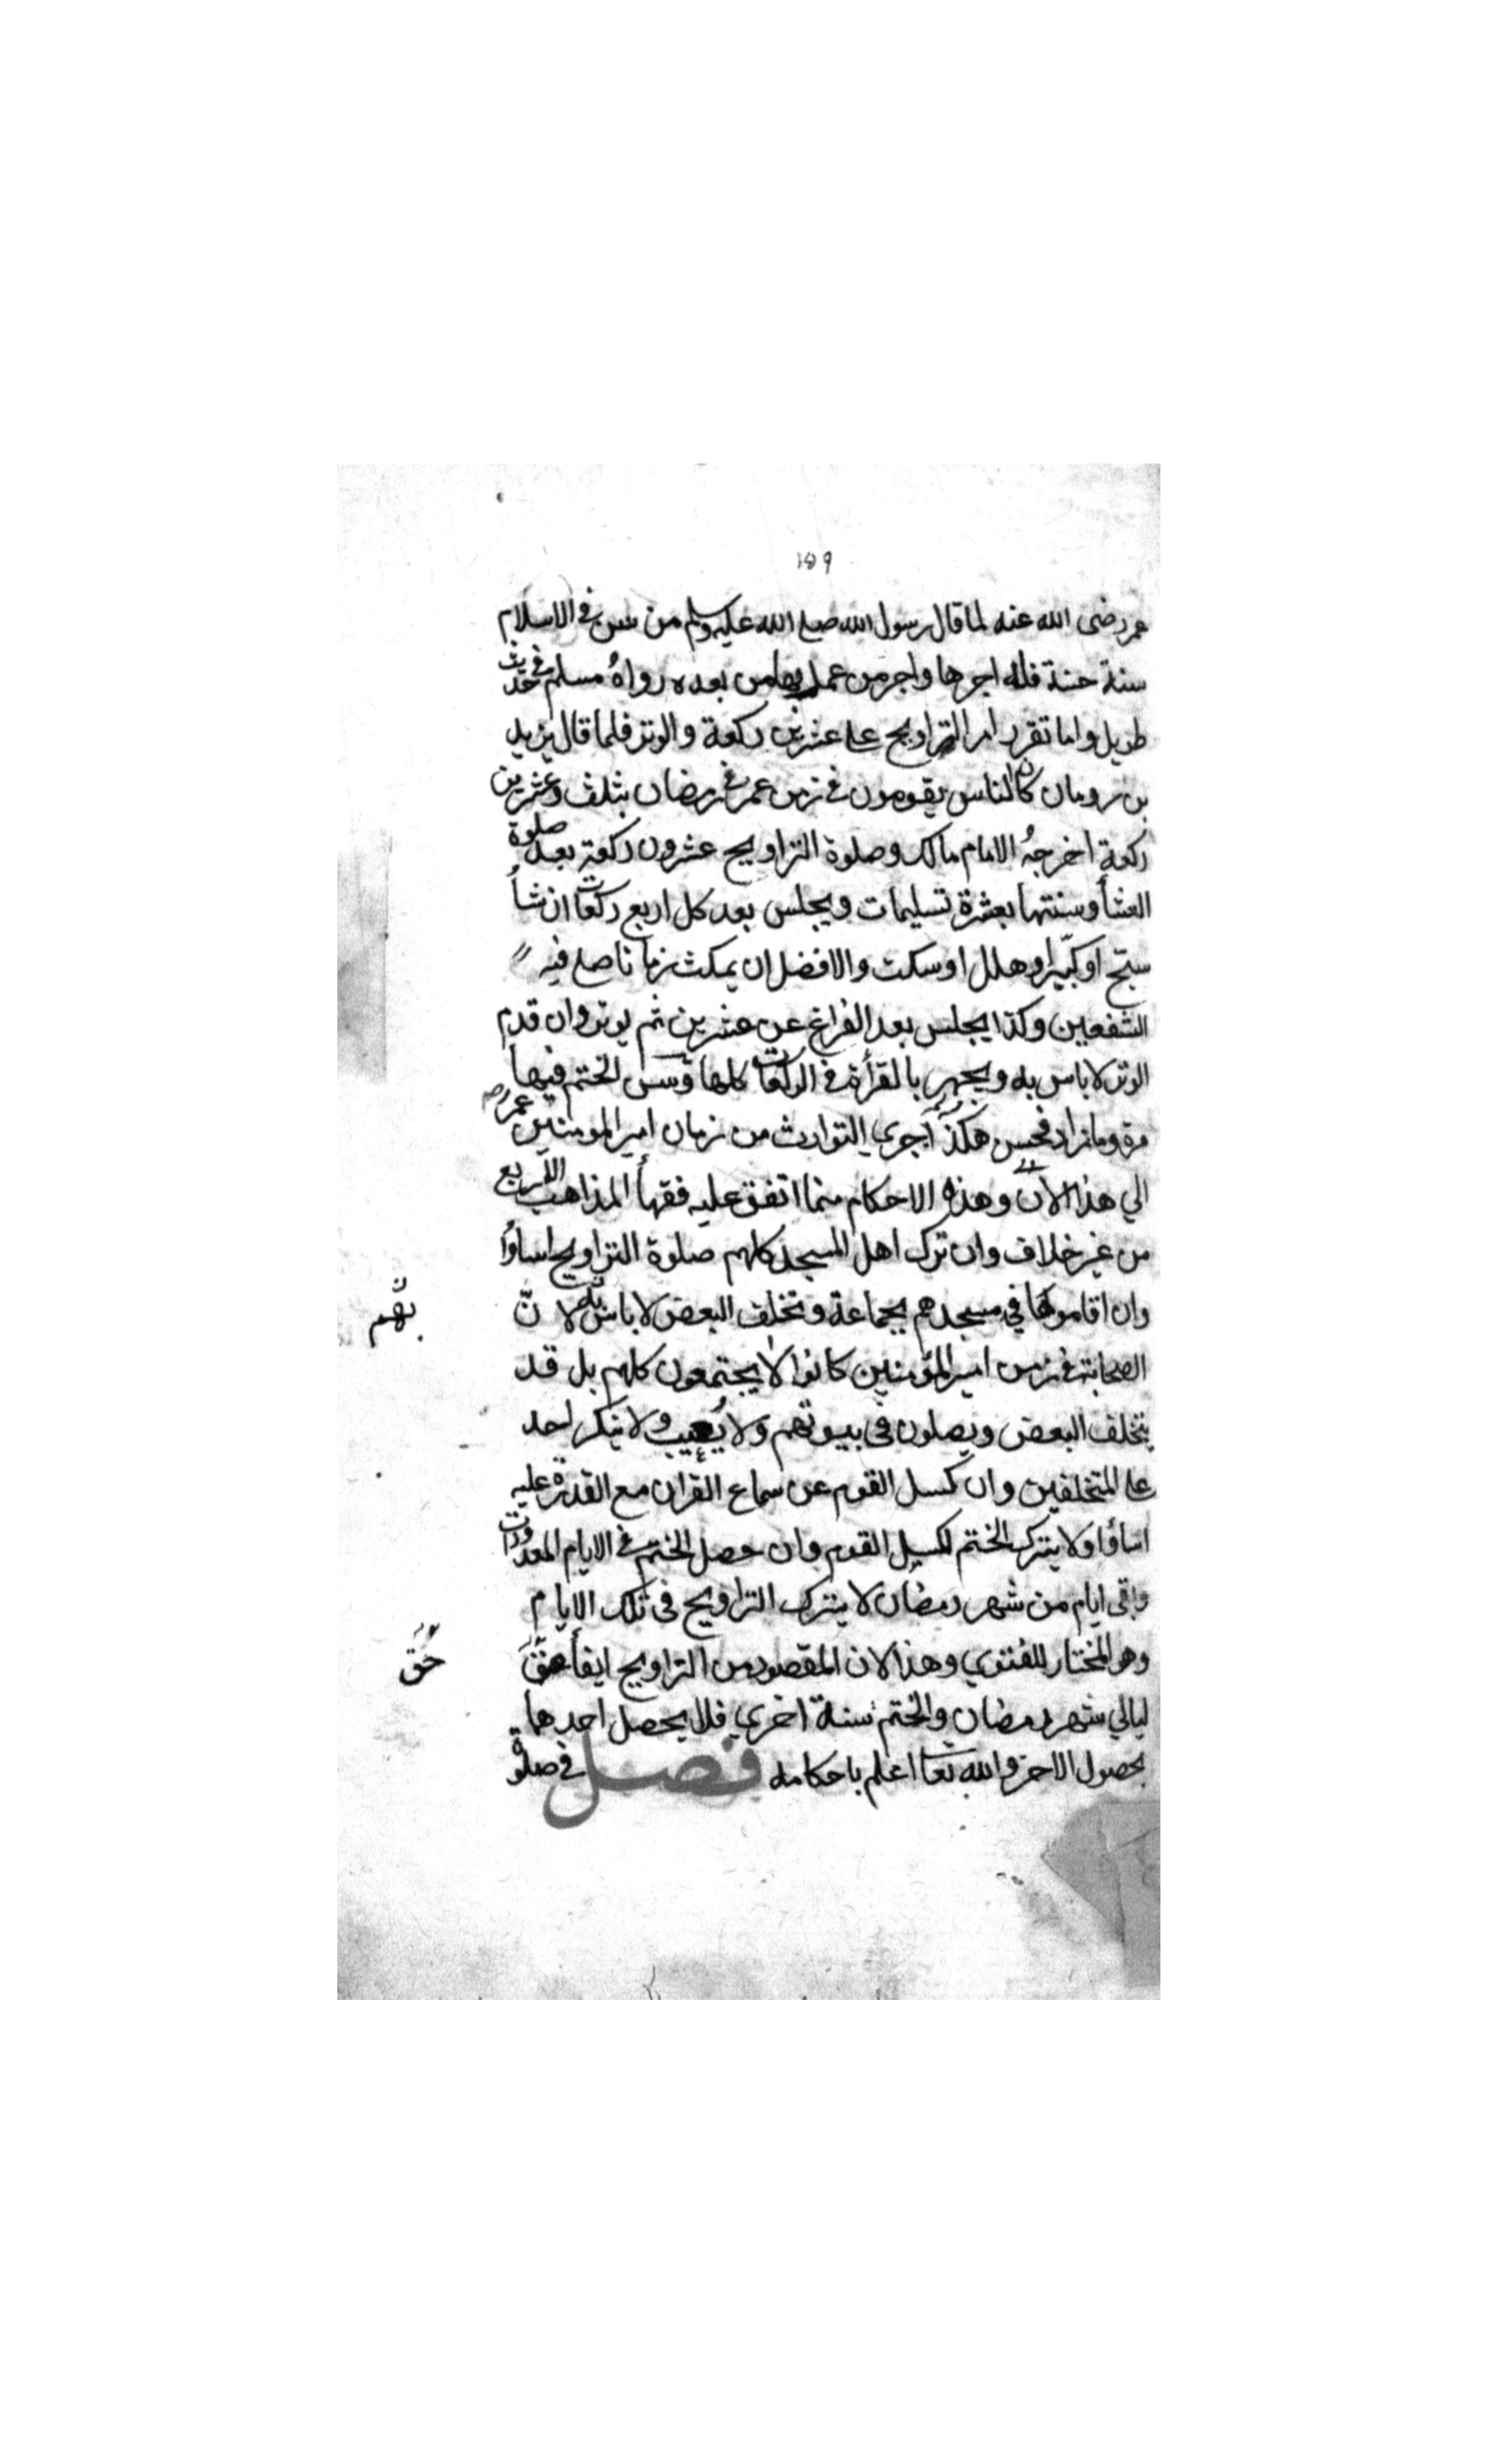 ١٥٩
عمر رضى الله عنه لما قال رسول الله صلع الله عليه وسلم من سن في الاسلام
سنة حسنة فله اجرها واجر من عمل بها من بعده رواهُ مسلم في حديث
طويل واما تقرر امر التراويح علے عشرين ركعة والوتر فلما قال يزيد
بن رومان كان الناس يقومون في زمن عمر في رمضان بثلث وعشرين
ركعة اخرجهُ الامام مالك وصلوة التراويح عشرون ركعة بعد صلوة
العشأ وسنتها بعشرة تسليمات ويجلس بعد كل اربع ركعات ان شأ
سبّح او كبّر او هلل او سكت والافضل ان يمكث زمانا صلے فيه
الشفعين وكذا يجلس بعد الفراغ عن عشرين ثم يوتر وان قدم
الوتر لا باس به ويجهر بالقرأة في الركعات كلها وسن الختم فيها
مرة وما زاد فحسن هكذا جري التوارث من زمان امير المومنين عمر رضـ
الي هذا الآن وهذه الاحكام مما اتفق عليه فقهأ المذاهب الاربع
من غير خلاف وان ترك اهل المسجد كلهم صلوة التراويح اساؤا
وان اقاموها في مسجدهم بجماعة وتخلف البعض لا باس به لانّ
بهم
الصحابة في زمن امير المؤمنين كانوا لا يجتمعون كلهم بل قد
يتخلف البعض ويصلون في بيوتهم ولا يُعيب ولا ينكر احد
علے المتخلفين وان كسل القوم عن سماع القران مع القدرة عليه
اساؤا ولا يترك الختم لكسل القوم وان حصل الختم في الايام المعدودات
وبقى ايام من شهر رمضان لا يترك التراويح فى تلك الايام
وهو المختار للفتوي وهذا لان المقصود من التراويح ايفأ حقّ
حَق
ليالي شهر رمضان والختم سنة اخري فلا يحصل احدهما
بحصول الاخر والله تعا اعلم باحكامه فصل في صلوة